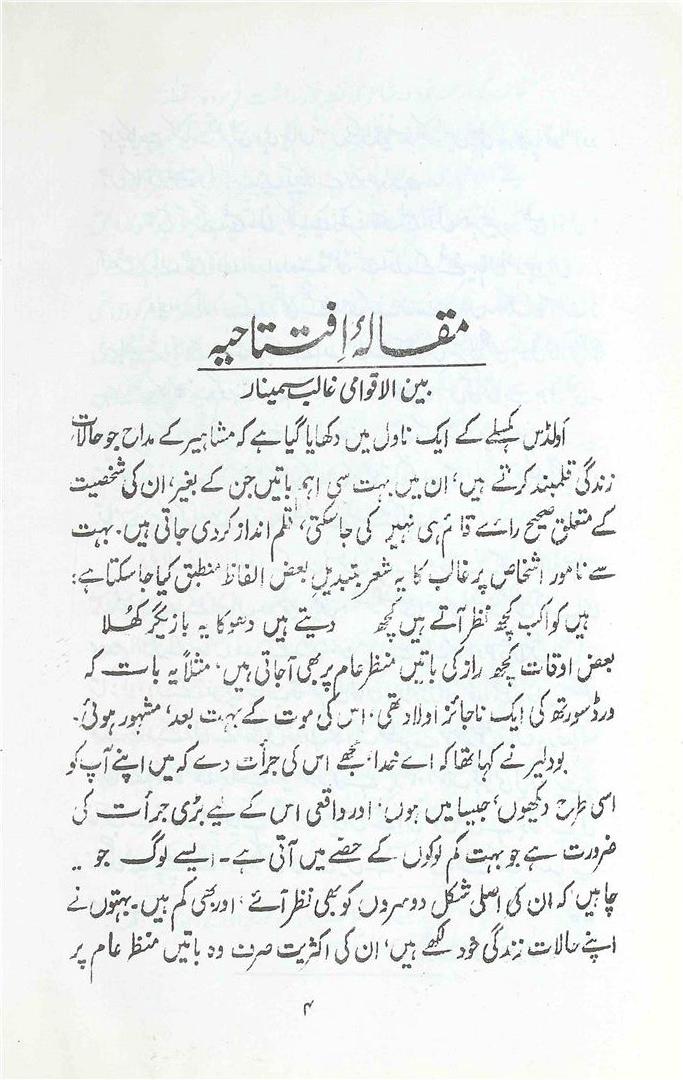 مقالۂ اِفتتاحیہ
بین الاقوامی غالب سمینار
اولڈس ہکسلے کے ایک ناول میں دکھایا گیا ہے کہ مشاہیر کے مداح جو حالات
زندگی قلمبند کرتے ہیں، ان میں بہت سی اہم باتیں جن کے بغیر، ان کی شخصیت
کے متعلق صحیح رائے قائم ہی نہیں کی جاسکتی، قلم انداز کردی جاتی ہیں۔ بہت
سے نامور اشخاص پر غالب کا یہ شعر بتبدیلِ بعض الفاظ منطبق کیا جاسکتا ہے:
ہیں کواکب کچھ نظر آتے ہیں کچھ دیتے ہیں دھوکا یہ بازیگر کھُلا
بعض اوقات کچھ راز کی باتیں منظر عام پر بھی آجاتی ہیں، مثلاً یہ بات کہ
ورڈسورتھ کی ایک ناجائز اولاد تھی، اس کی موت کے بہت بعد، مشہور ہوئی۔
بودلیر نے کہا تھا کہ اے خدا مجھے اس کی جرأت دے کہ میں اپنے آپ کو
اسی طرح دکھوں، جیسا میں ہوں، اور واقعی اس کے لیے بڑی جرأت کی
ضرورت ہے جو بہت کم لوگوں کے حصّے میں آتی ہے۔ ایسے لوگ جو
چاہیں کہ ان کی اصلی شکل دوسروں کو بھی نظر آئے، اور بھی کم ہیں۔ بہتوں نے
اپنے حالات زندگی خود لکھے ہیں، ان کی اکثریت صرف وہ باتیں منظر عام پر
۴